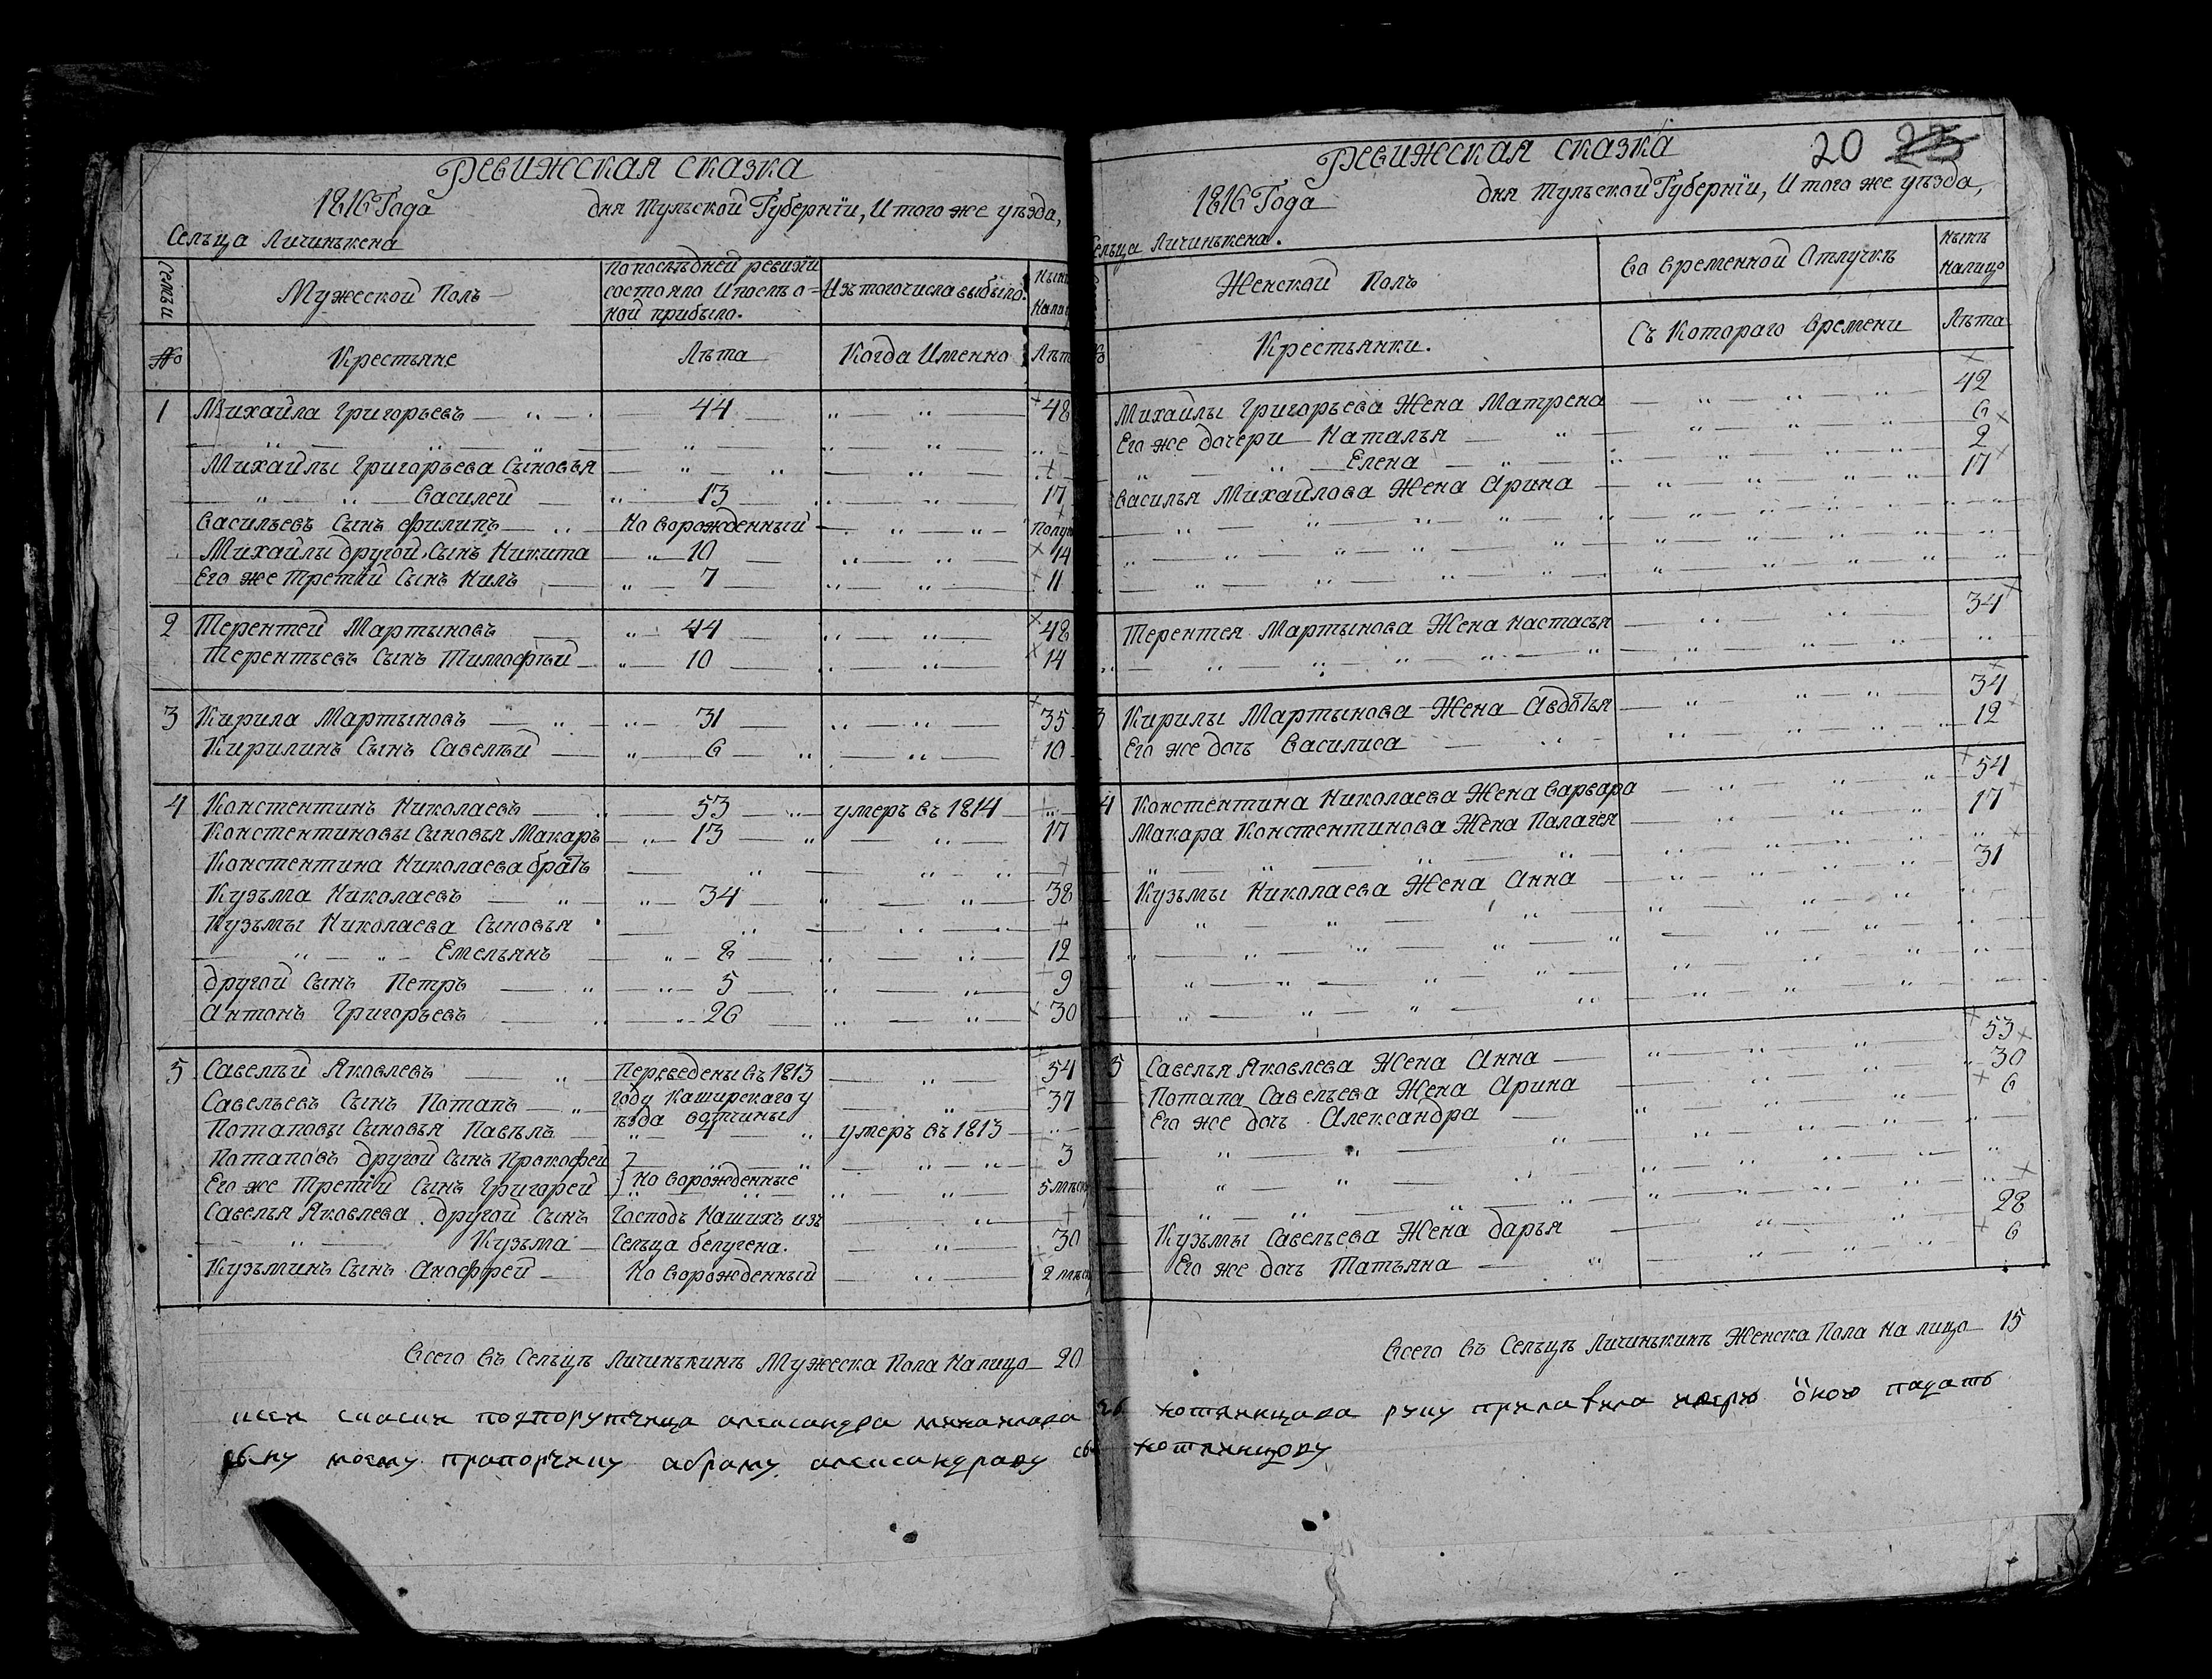 Ревижская сказка
1816 Года дня тульской Губернїи, И того же уъзда,
Сельца Личинкена
Семьи
Мужеской Полъ
По послъдней ревизїи состояло И послъ оной прибыло.
Изъ того числа выбыло.
Нынъ
№ Крестьяне Лъта Когда Именно Лъта
1 Михайла Григорьевъ 44 48
Михайлы Григорьева Сыновья
Василей 13 17
Васильевъ Сынъ Филипъ Новорожденный
Михайлы другой Сынъ Никита 10 14
Его же третїй Сынъ Нилъ 7 11
2 Терентей Мартыновъ 44 48
Терентьевъ Сынъ Тимофъй 10 14
3 Кирила Мартыновъ 31 35
Кирилинъ Сынъ Савелъй 6 10
4 Констентинъ Николаевъ 53 умеръ въ 1814
Констентиновы Сыновья Макаръ 13 17
Констентина Николаева братъ
Кузьма Николаевъ 34 38
Кузьмы Николаева Сыновья
Емельянъ 8 12
другой Сынъ Петръ 5 9
Антонъ Григорьевъ 26 30
5 Савелъй Яковлевъ Переведены въ 1813 54
Савельевъ Сынъ Потапъ году Каширскаго у 37
Потаповы Сыновья Павълъ ъзда вотчины 4 умеръ въ 1813
Потаповъ другой Сынъ Прокофей 3
Его же Третїй Сынъ Григорей Новорожденные 5 мъся
Савелья Яковлева другой Сынъ Господъ Нашихъ изъ
Кузьма Сельца белугена. 30
Кузьминъ Сынъ Анофрей Новорожденный 2 мъся
Всего въ Сельцъ Личинькинъ Мужеска Пола Налицо 20
подпорутчица александра
сыну моему прапорщику абраму александраву
20 23
Ревижская сказка
1816 Года дня тульской Губернїи, И того же уъзда,
Сельца Личинькена.
Женской Полъ
Во временной Отлучкъ
Нынъ Налицо
Крестьянки. Съ Котораго времени Лъта
Михайлы Григорьева Жена Матрена 42
Его же дочери Наталья 6
Елена 2
Василья Михайлова Жена Арина 17
Терентея Мартынова Жена настасья 34
3 Кирилы Мартынова Жена Авдотья 34
Его же дочь Василиса 12
4 Констентина Николаева Жена Варвара 54
Макара Констентинова Жена Палагея 17
Кузьмы Николаева Жена Анна 31
5 Савелья Яковлева Жена Анна 53
Потапа Савельева Жена Арина 30
Его же дочь Александра 6
Кузьмы Савельева Жена дарья 28
Его же дочь Татьяна 6
Всего въ Сельцъ Личинькинъ Женска Пола На лицо 15
руку прилажила падать